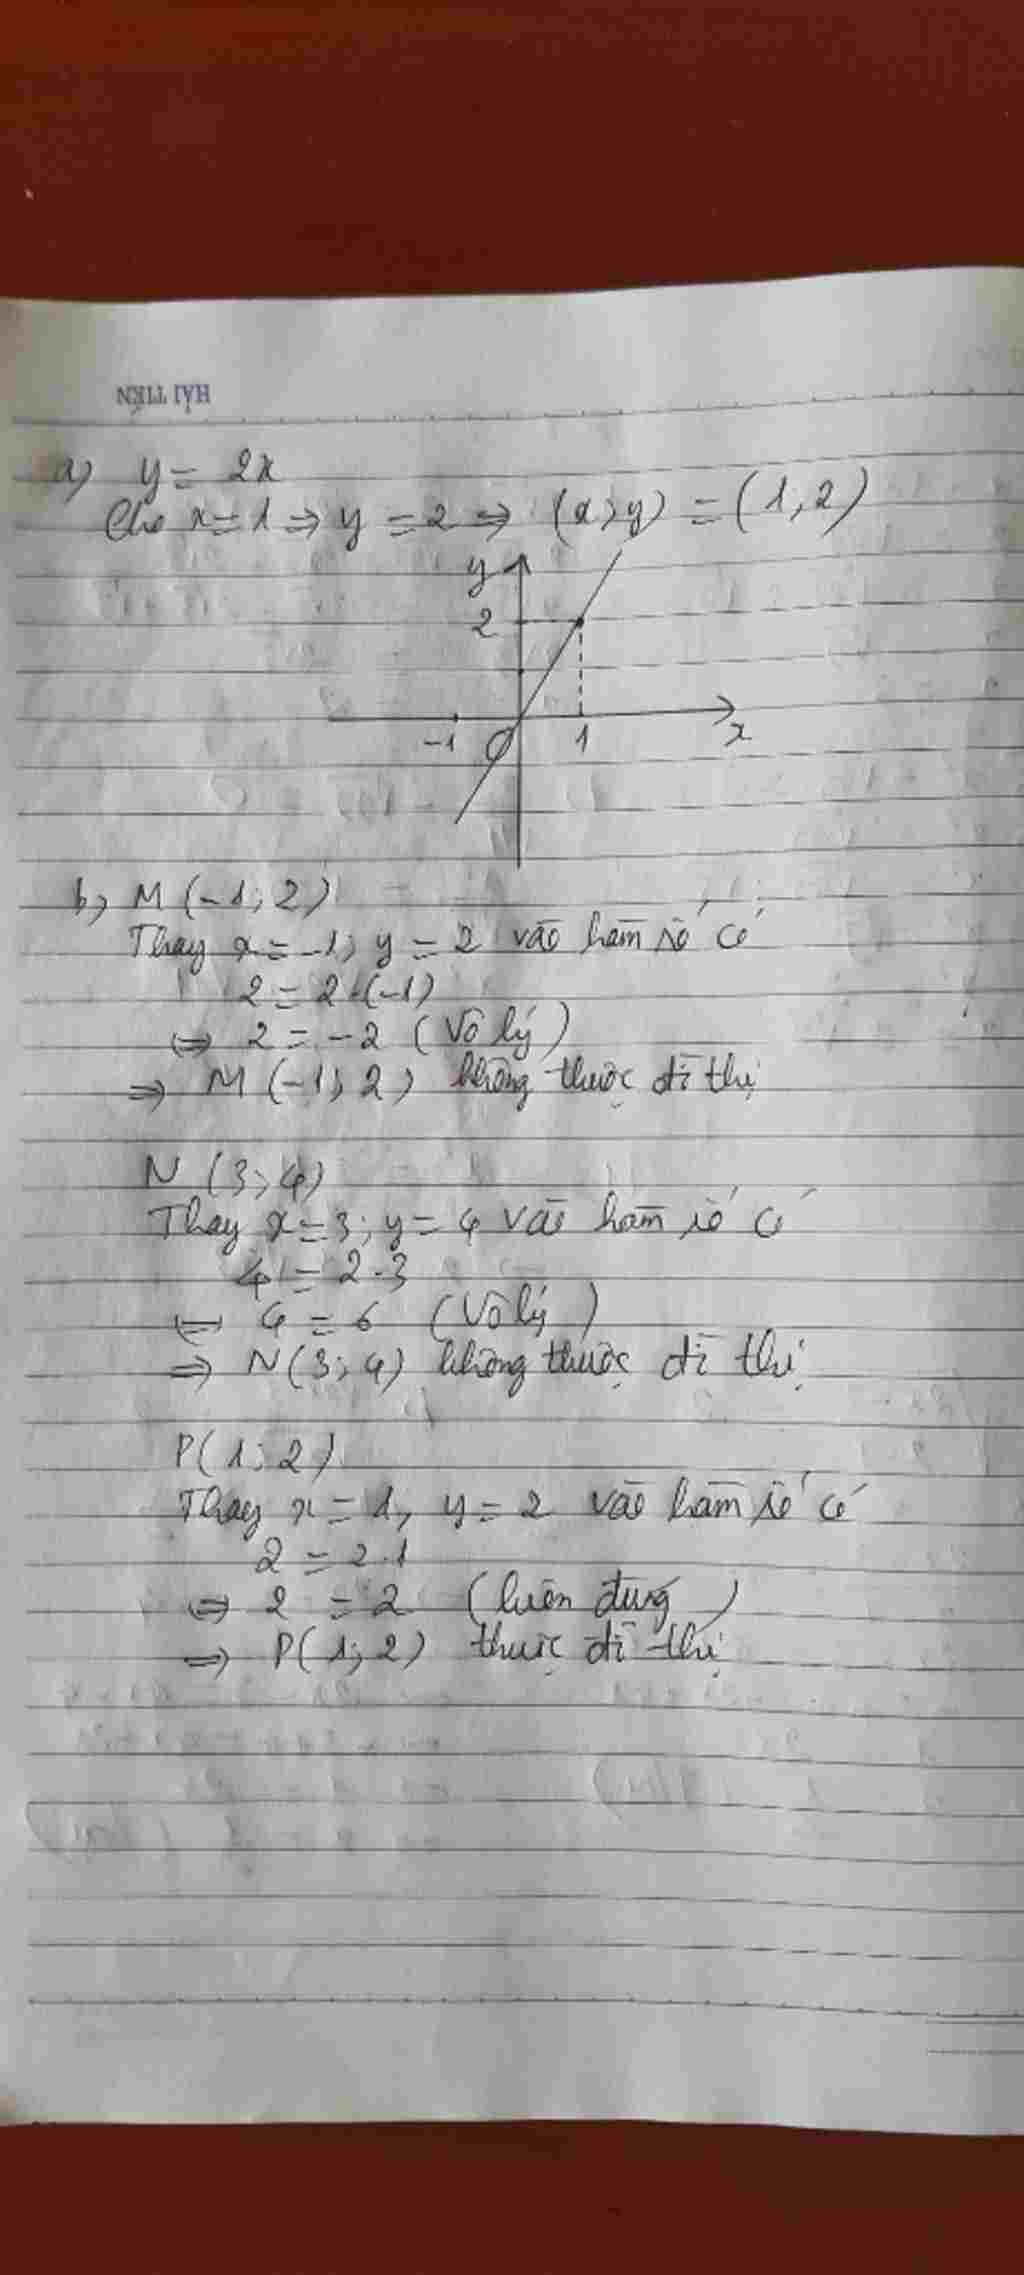 HẢI TIẾN
a) y = 2x
Cho x = 1 ⇒ y = 2 ⇒ (x; y) = (1; 2)
y
2
-1 O 1 x
b) M (-1; 2)
Thay x = -1; y = 2 vào hàm số có
2 = 2.(-1)
⇔ 2 = -2 (Vô lý)
⇒ M (-1; 2) không thuộc đồ thị
N (3; 4)
Thay x = 3; y = 4 vào hàm số có
4 = 2.3
⇔ 4 = 6 (Vô lý)
⇒ N(3; 4) không thuộc đồ thị
P(1; 2)
Thay x = 1, y = 2 vào hàm số có
2 = 2.1
⇔ 2 = 2 (luôn đúng)
⇒ P(1; 2) thuộc đồ thị